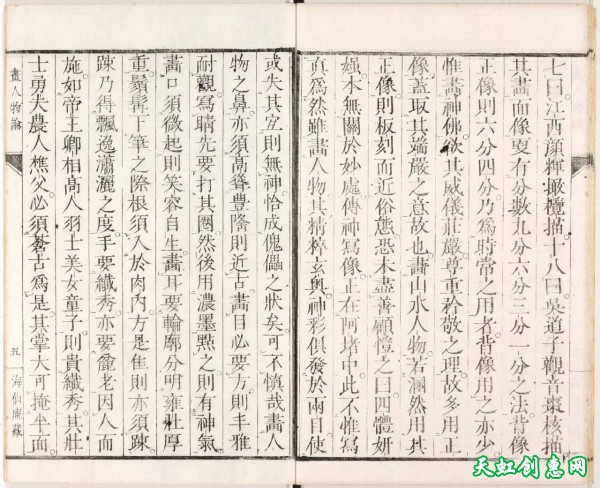 七曰江西顏輝橄欖描十八曰吳道子觀音棗核描
其畫面像叓有分數九分六分三分一分之法背像
正像則六分四分乃爲時常之用者背像用之亦少
惟畵神佛欲其威儀莊嚴尊重矜敬之理故多用正
像蓋取其端嚴之意故也畵山水人物若溷然用其
正像則板刻而近俗態恐未盡善顧愷之曰四體妍
媸本無關於妙處傳神寫像正在阿堵中此不惟寫
真爲然雖畫人物其精粹玄奥神彩俱發於兩目使
或失其宜則無神恰成傀儡之狀矣可不慎哉畵人
物之鼻亦須高聳豐隆則近古畵目必要方則丰雅
耐觀寫睛先要打其圈然後用濃墨點之則有神氣
畵口須微起則笑容自生畵耳要輪廓分明雍壯厚
重鬚髯上筆之際根須入於肉內方是隹則亦須踈
踈乃得飄逸瀟灑之度手要纖秀亦要麄老因人而
施如帝王卿相高人羽士美女童子則貴纖秀其壯
士勇夫農人樵父必須蒼古爲是其掌大可掩半面
畫人物論
五
海仙庫藏
天虹创意网